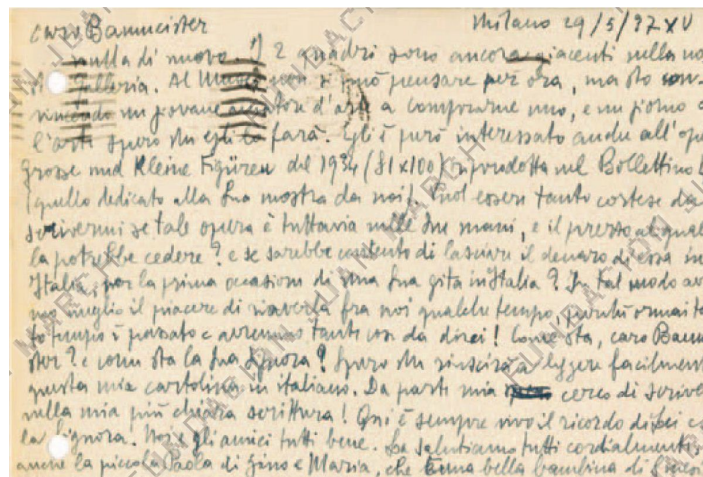 caro Baumeister Milano 29/5/37 XV
nulla di nuovo. I 2 quadri sono ancora giacenti nella no
Galleria. Al Museo non si può pensare per ora, ma sto con-
vincendo un giovane amatore d'arte a comprarne uno, e un giorno o
l'altro spero che egli lo farà. Egli è però interessato anche all'ope
grosse und Kleine Figüren del 1934 (81x100) riprodotta nel Bollettino
(quello dedicato alla Sua mostra da noi). Vuol essere tanto cortese da
scrivermi se tale opera è tuttavia nelle Sue mani, e il prezzo al qual
la potrebbe cedere? e se sarebbe contento di lasciare il denaro di essa in
Italia, per la prima occasione di una Sua gita in Italia? In tal modo av
mo meglio il piacere di riaverLa fra noi qualche tempo, perchè ormai ta
to tempo è passato e avremmo tante cose da dirci! Come sta, caro Baum
ster? e come sta la Sua Signora? Spero che riuscirà a leggere facilment
questa mia cartolina in italiano. Da parte mia cerco di scrive
nella mia più chiara scrittura! Qui è sempre vivo il ricordo di Lei e
la Signora. Noi e gli amici tutti bene. La salutiamo tutti cordialmente,
anche la piccola Paola di Gino e Maria, che è una bella bambina di